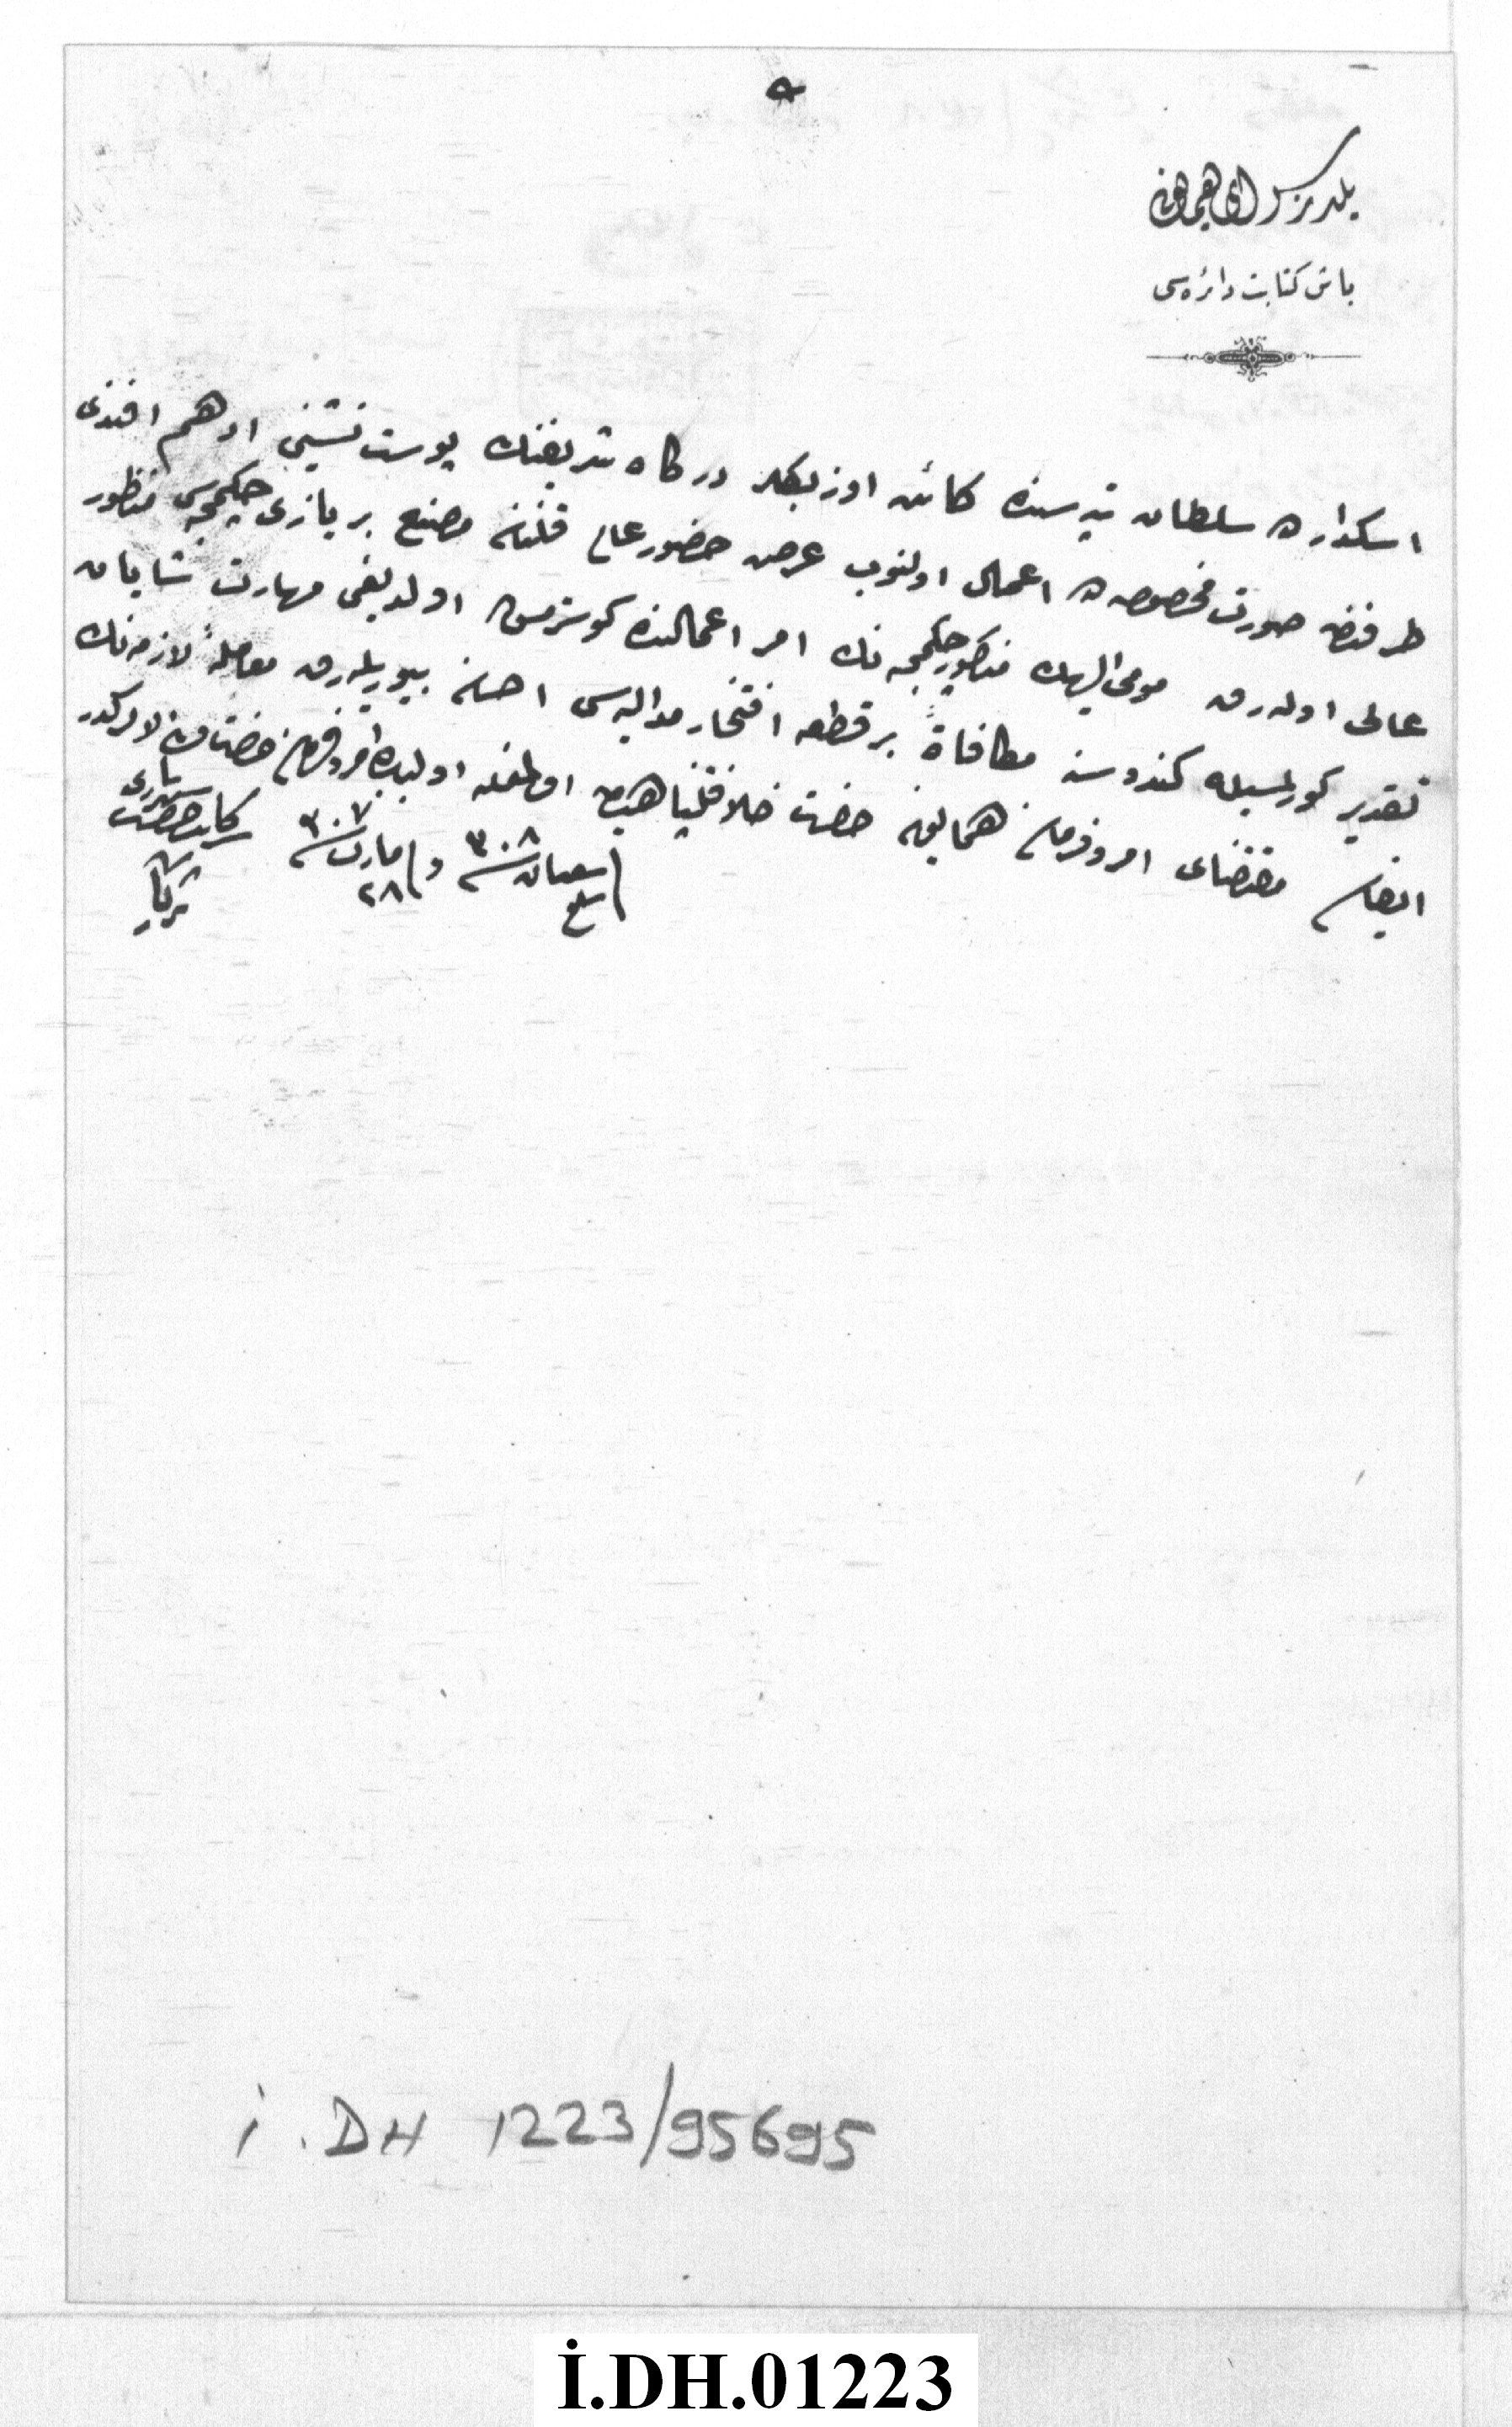 يلدز سراى همايونى
باش كتابت دائره سى
اسكدارده سلطان تپه سنده كائن اوزبكلر دركاه شريفنك پوست نشينى ادهم افندى
طرفندن صورت مخصوصه ده اعمال اولنوب عرض حضور عالى قلنان مصنع بر يازى چكمجه سى منظور
عالى اوله رق مومى اليهك مذكور چكمجه نك امر اعمالنده كوسترمش اولديغى مهارت شايان
تقدير كورلمسيله كندوسنه مكافاةً بر قطعه افتخار مداليه سى احسان بيوريله رق معامله لازمه نك
ايفاسى مقتضاى امر و فرمان همايون حضرت خلافتپناهيدن اولمغله اولبابده امر و فرمان حضرت من له الامركدر
فى سلخ شعبان سنه ٣٠٨ و فى ٢٨ مارت سنه ٣٠٧
سركاتب حضرت شهريارى
ثريا
İ.DH 1223/95695
İ.DH.01223